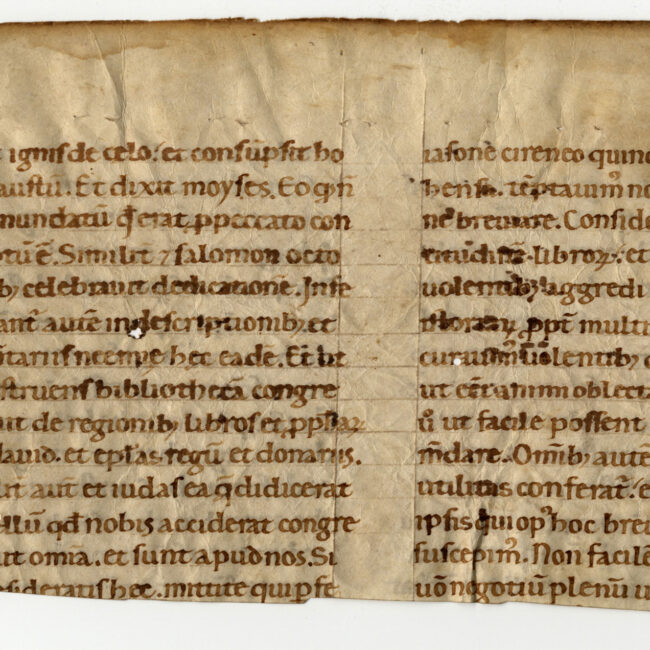 ignis de celo. et consūpsit ho
austū. Et dixit moyses. Eo qn̄
mundatū q̄ erat ꝓ peccato con
ptū ē. Similit̄ ⁊ salomon octo
bꝫ celebrauit dedicationē. Infe
ant᷑ autē in descriptionibꝫ et
ntariis neemye hec eadē. Et ut
struens bibliothecā congre
uit de regionibꝫ libros et ꝓphaꝝ
dauid. et ep̄las regū et donariis.
lit̄ aut̄ et iudas ea q̄ didicerat
ellū qd̄ nobis acciderat congre
uit omīa. et sunt apud nos. Si
sideratis hec. mittite qui ꝑfe
iasone cireneo quinq
tēptauim᷒ no
ne breuiare. Conside
titudinē libroꝝ. et
uolentibꝫ aggredi
ꝓpt̄ multi
curauim᷒ uolentibꝫ
ut eēt animi oblecta
ū ut facile possent
m̄dare. Omībꝫ autē
utilitas conferat᷑.
ipsis qui op᷒ hoc breu
suscepim᷒. Non facilē
uō negotiū plenū u